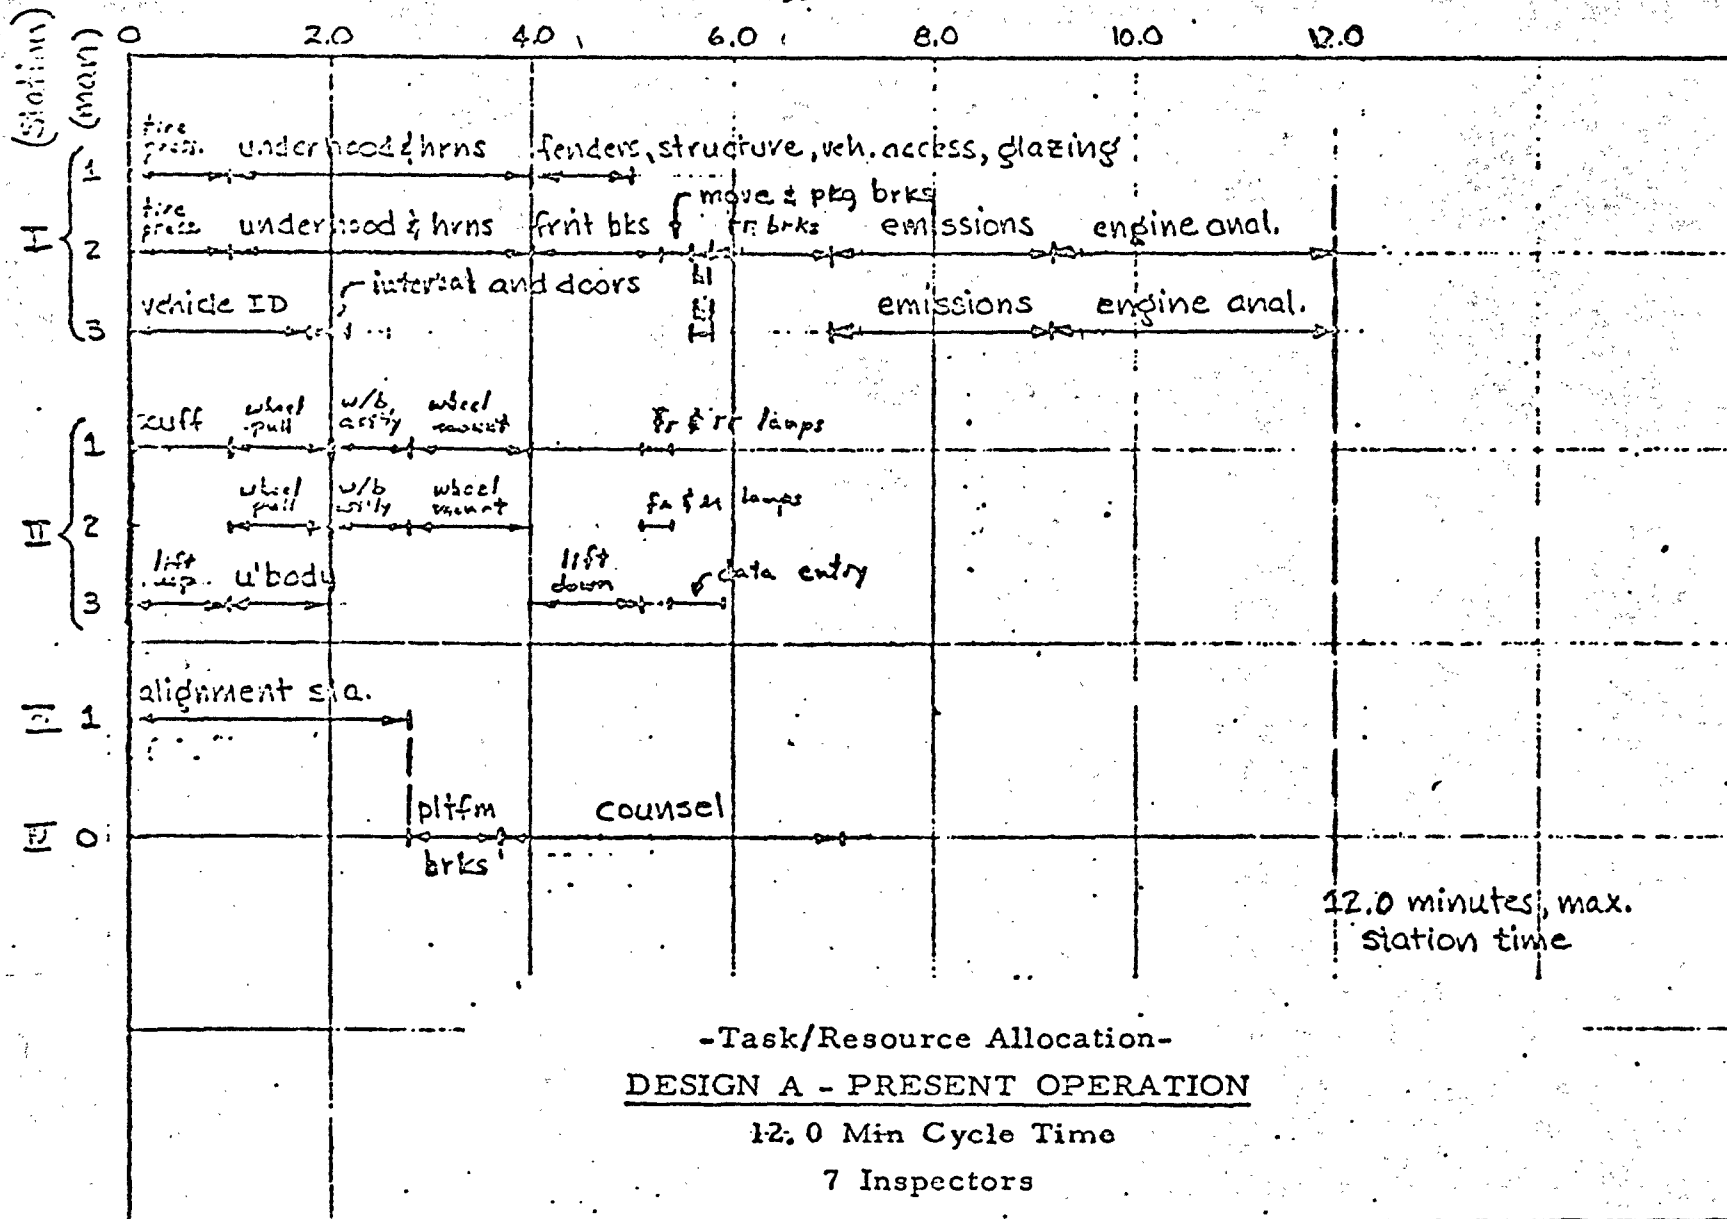 (Station)
(man)
0 2.0 4.0 6.0 8.0 10.0 12.0
I
1 tire press. underhood & hrns fenders, structure, veh. access, glazing
move & pkg brks
2 tire press. underhood & hrns frnt bks rr brks emissions engine anal.
internal and doors
3 vehicle ID emissions engine anal.
II
1 scuff wheel pull w/b assy wheel mount fr & rr lamps
2 wheel pull w/b assy wheel mount fr & rr lamps
3 lift up u'body lift down data entry
1 alignment sta.
0 pltfm brks counsel
12.0 minutes, max.
station time
-Task/Resource Allocation-
DESIGN A - PRESENT OPERATION
12.0 Min Cycle Time
7 Inspectors